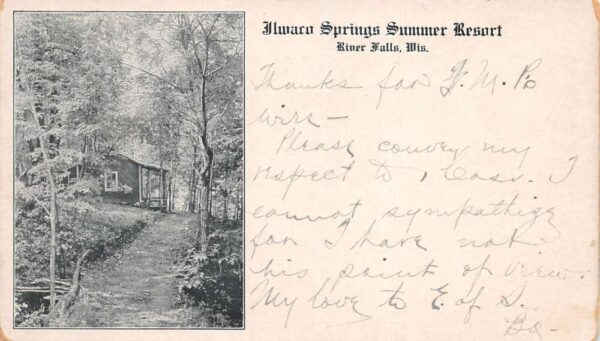 Ilwaco Springs Summer Resort
River Falls, Wis.
Thanks for F. M. Ps
wire –
Please convey my
respect to , Cass. I
cannot sympathize
for I have not
his point of view.
My love to E. of S.